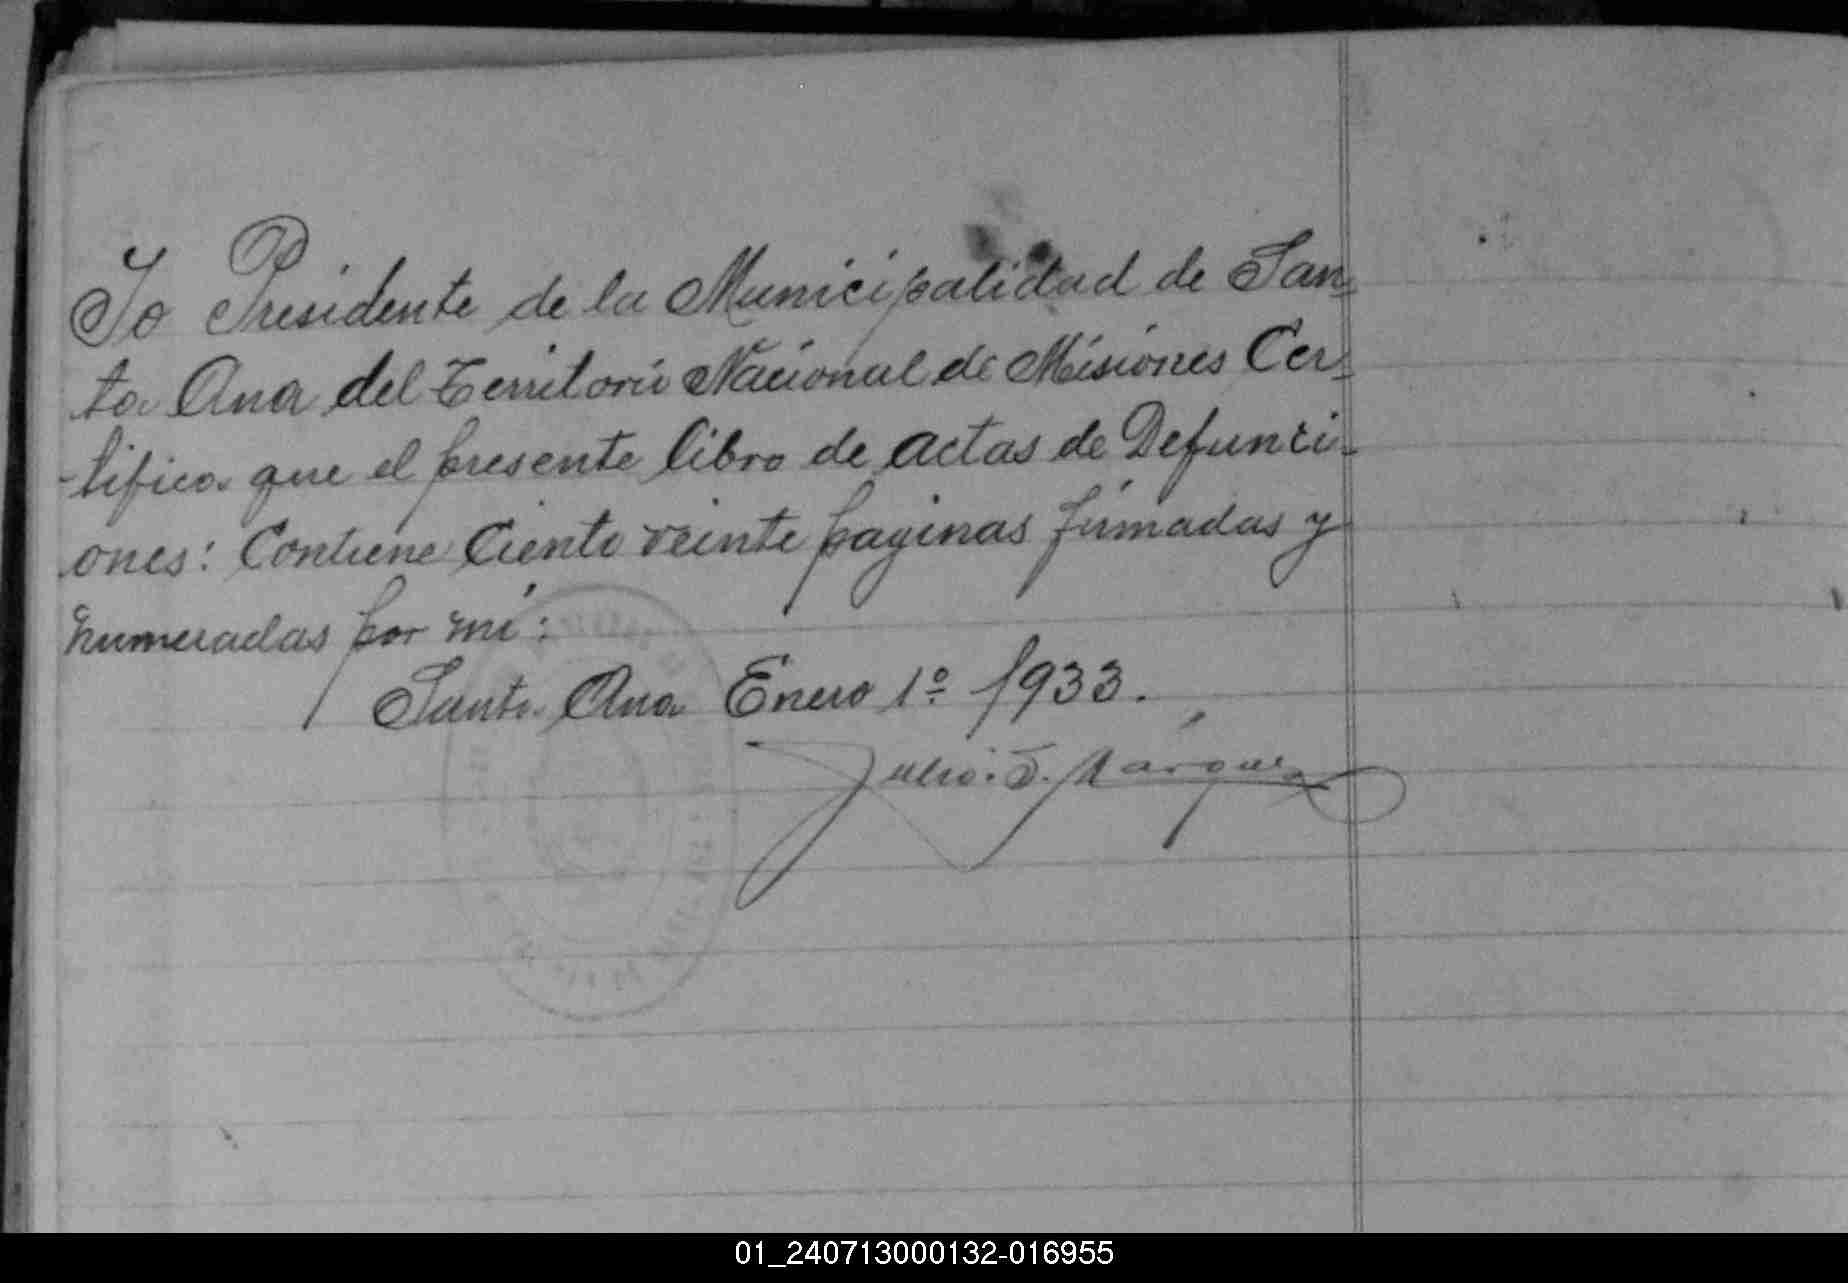 Yo Presidente de la Municipalidad de San=
ta Ana del Territorio Nacional de Misiones Cer=
-tifica que el presente libro de actas de Defunci-
ones: Contiene Ciento veinte paginas firmadas y
numeradas por mi:
Santa Ana Enero 1º 1933.
Julio. S. Márquez
01_240713000132-016955